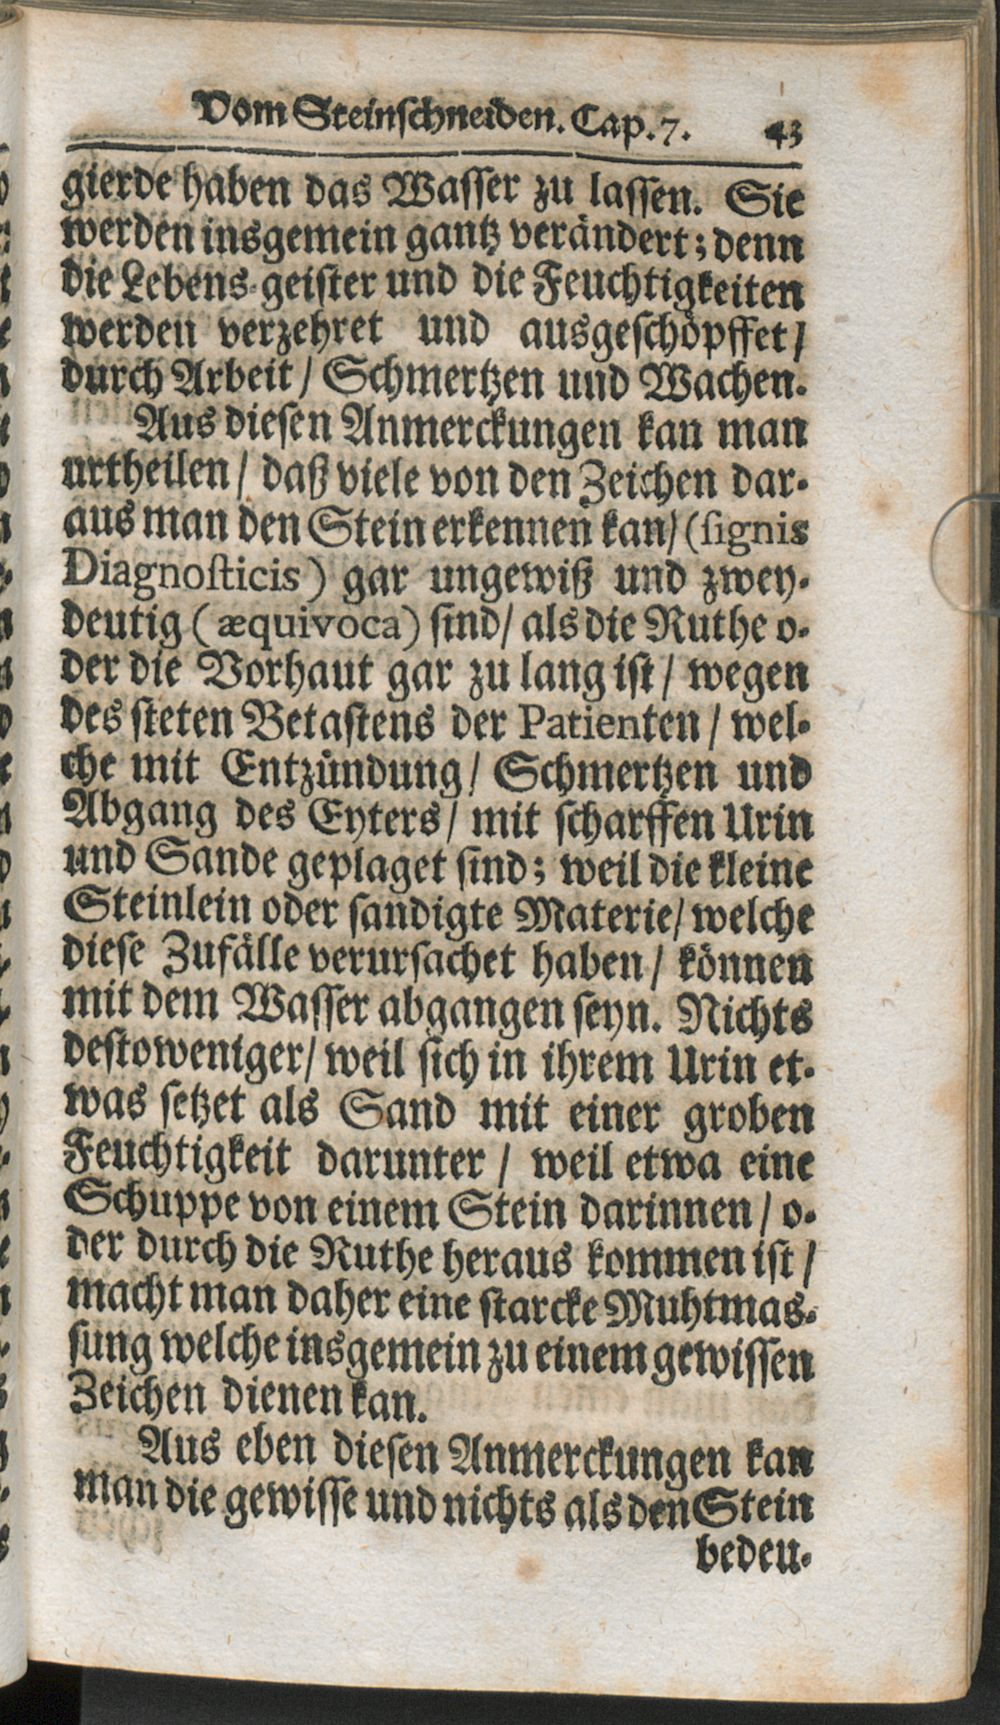 Vom Steinschneiden. Cap. 7. 43
gierde haben das Wasser zu lassen. Sie
werden insgemein gantz verändert; denn
die Lebens-geister und die Feuchtigkeiten
werden verzehret und ausgeschöpffet /
durch Arbeit / Schmertzen und Wachen.
Aus diesen Anmerckungen kan man
urtheilen / daß viele von den Zeichen dar-
aus man den Stein erkennen kan / (signis
Diagnosticis) gar ungewiß und zwey-
deutig (æquivoca) sind / als die Ruthe o-
der die Vorhaut gar zu lang ist / wegen
des steten Betastens der Patienten / wel-
che mit Entzündung / Schmertzen und
Abgang des Eyters / mit scharffen Urin
und Sande geplaget sind; weil die kleine
Steinlein oder sandigte Materie / welche
diese Zufälle verursachet haben / können
mit dem Wasser abgangen seyn. Nichts
destoweniger / weil sich in ihrem Urin et-
was setzet als Sand mit einer groben
Feuchtigkeit darunter / weil etwa eine
Schuppe von einem Stein darinnen / o-
der durch die Ruthe heraus kommen ist /
macht man daher eine starcke Muhtmas-
sung welche insgemein zu einem gewissen
Zeichen dienen kan.
Aus eben diesen Anmerckungen kan
man die gewisse und nichts als den Stein
bedeu-